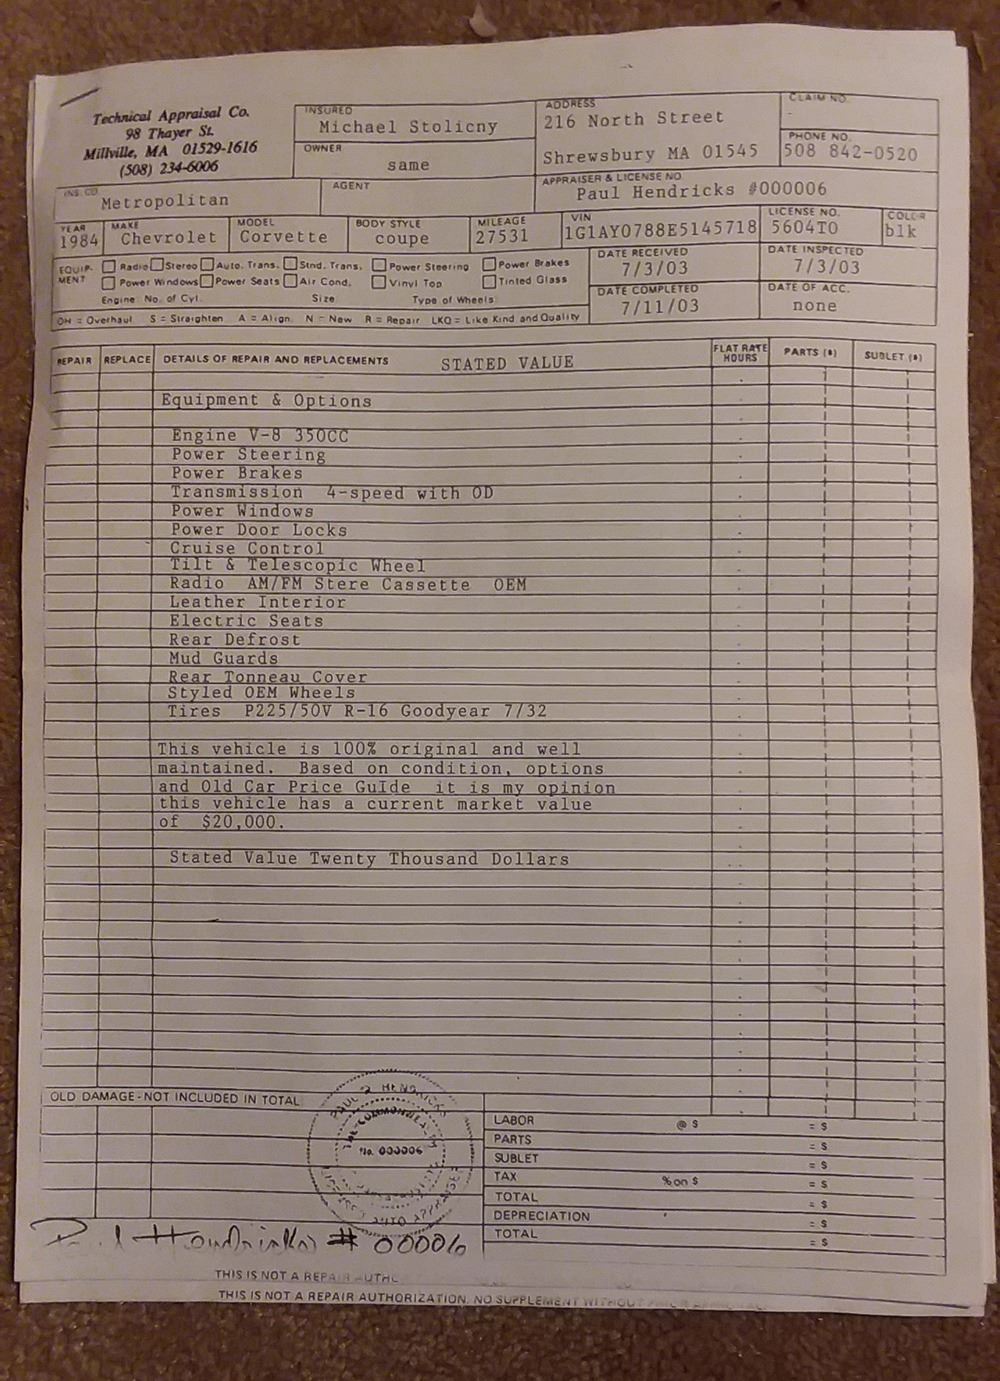 Technical Appraisal Co.
98 Thayer St.
Millville, MA 01529-1616
(508) 234-6006
INSURED
Michael Stolicny
OWNER
same
ADDRESS
216 North Street
Shrewsbury MA 01545
CLAIM NO.
PHONE NO.
508 842-0520
INS. CO.
Metropolitan
AGENT
APPRAISER & LICENSE NO.
Paul Hendricks #000006
YEAR
1984
MAKE
Chevrolet
MODEL
Corvette
BODY STYLE
coupe
MILEAGE
27531
VIN
1G1AY0788E5145718
LICENSE NO.
5604TO
COLOR
blk
EQUIP-
MENT
Radio Stereo Auto. Trans. Stnd. Trans. Power Steering Power Brakes
Power Windows Power Seats Air Cond. Vinyl Top Tinted Glass
Engine: No. of Cyl. Size Type of Wheels
OH = Overhaul S = Straighten A = Align N = New R = Repair LKQ = Like Kind and Quality
DATE RECEIVED
7/3/03
DATE INSPECTED
7/3/03
DATE COMPLETED
7/11/03
DATE OF ACC.
none
REPAIR REPLACE DETAILS OF REPAIR AND REPLACEMENTS STATED VALUE FLAT RATE HOURS PARTS ($) SUBLET ($)
Equipment & Options
Engine V-8 350CC
Power Steering
Power Brakes
Transmission 4-speed with OD
Power Windows
Power Door Locks
Cruise Control
Tilt & Telescopic Wheel
Radio AM/FM Stere Cassette OEM
Leather Interior
Electric Seats
Rear Defrost
Mud Guards
Rear Tonneau Cover
Styled OEM Wheels
Tires P225/50V R-16 Goodyear 7/32
This vehicle is 100% original and well
maintained. Based on condition, options
and Old Car Price GuIde it is my opinion
this vehicle has a current market value
of $20,000.
Stated Value Twenty Thousand Dollars
OLD DAMAGE - NOT INCLUDED IN TOTAL
PAUL D HENDRICKS
THE COMMONWEALTH
No. 000006
AUTO APPRAISER
LABOR @ $ = $
PARTS = $
SUBLET = $
TAX % on $ = $
TOTAL = $
DEPRECIATION = $
TOTAL = $
Paul Hendricks # 00006
THIS IS NOT A REPAIR AUTHO
THIS IS NOT A REPAIR AUTHORIZATION. NO SUPPLEMENT WITHOUT PRIOR APPROVAL